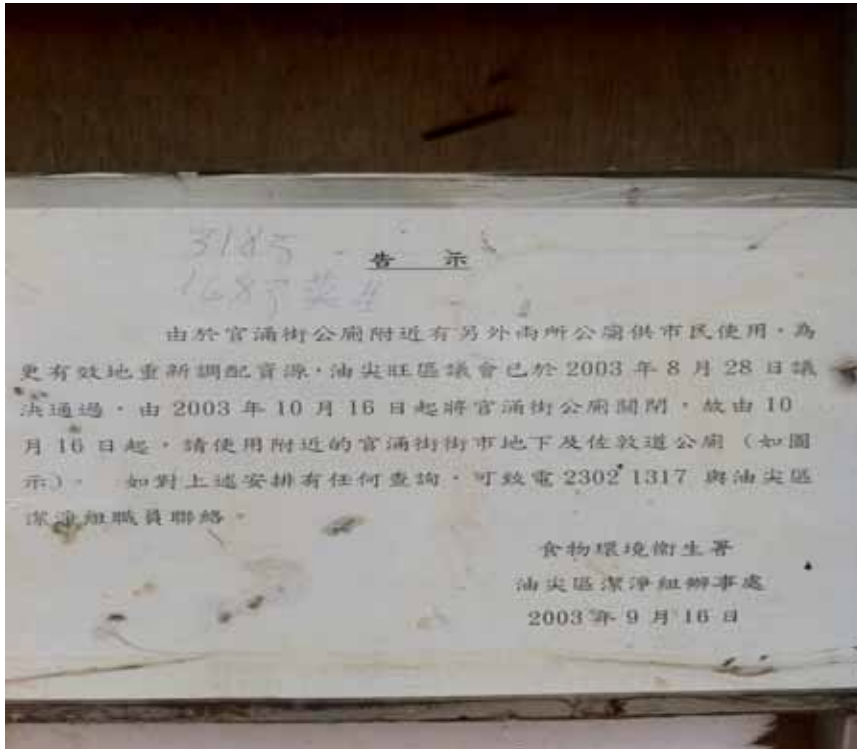 告 示
由於官涌街公廁附近有另外兩所公廁供市民使用，為
更有效地重新調配資源，油尖旺區議會已於 2003 年 8 月 28 日議
決通過，由 2003 年 10 月 16 日起將官涌街公廁關閉，故由 10
月 16 日起，請使用附近的官涌街街市地下及佐敦道公廁（如圖
示）。 如對上述安排有任何查詢，可致電 2302 1317 與油尖區
潔淨組職員聯絡。
食物環境衞生署
油尖區潔淨組辦事處
2003 年 9 月 16 日